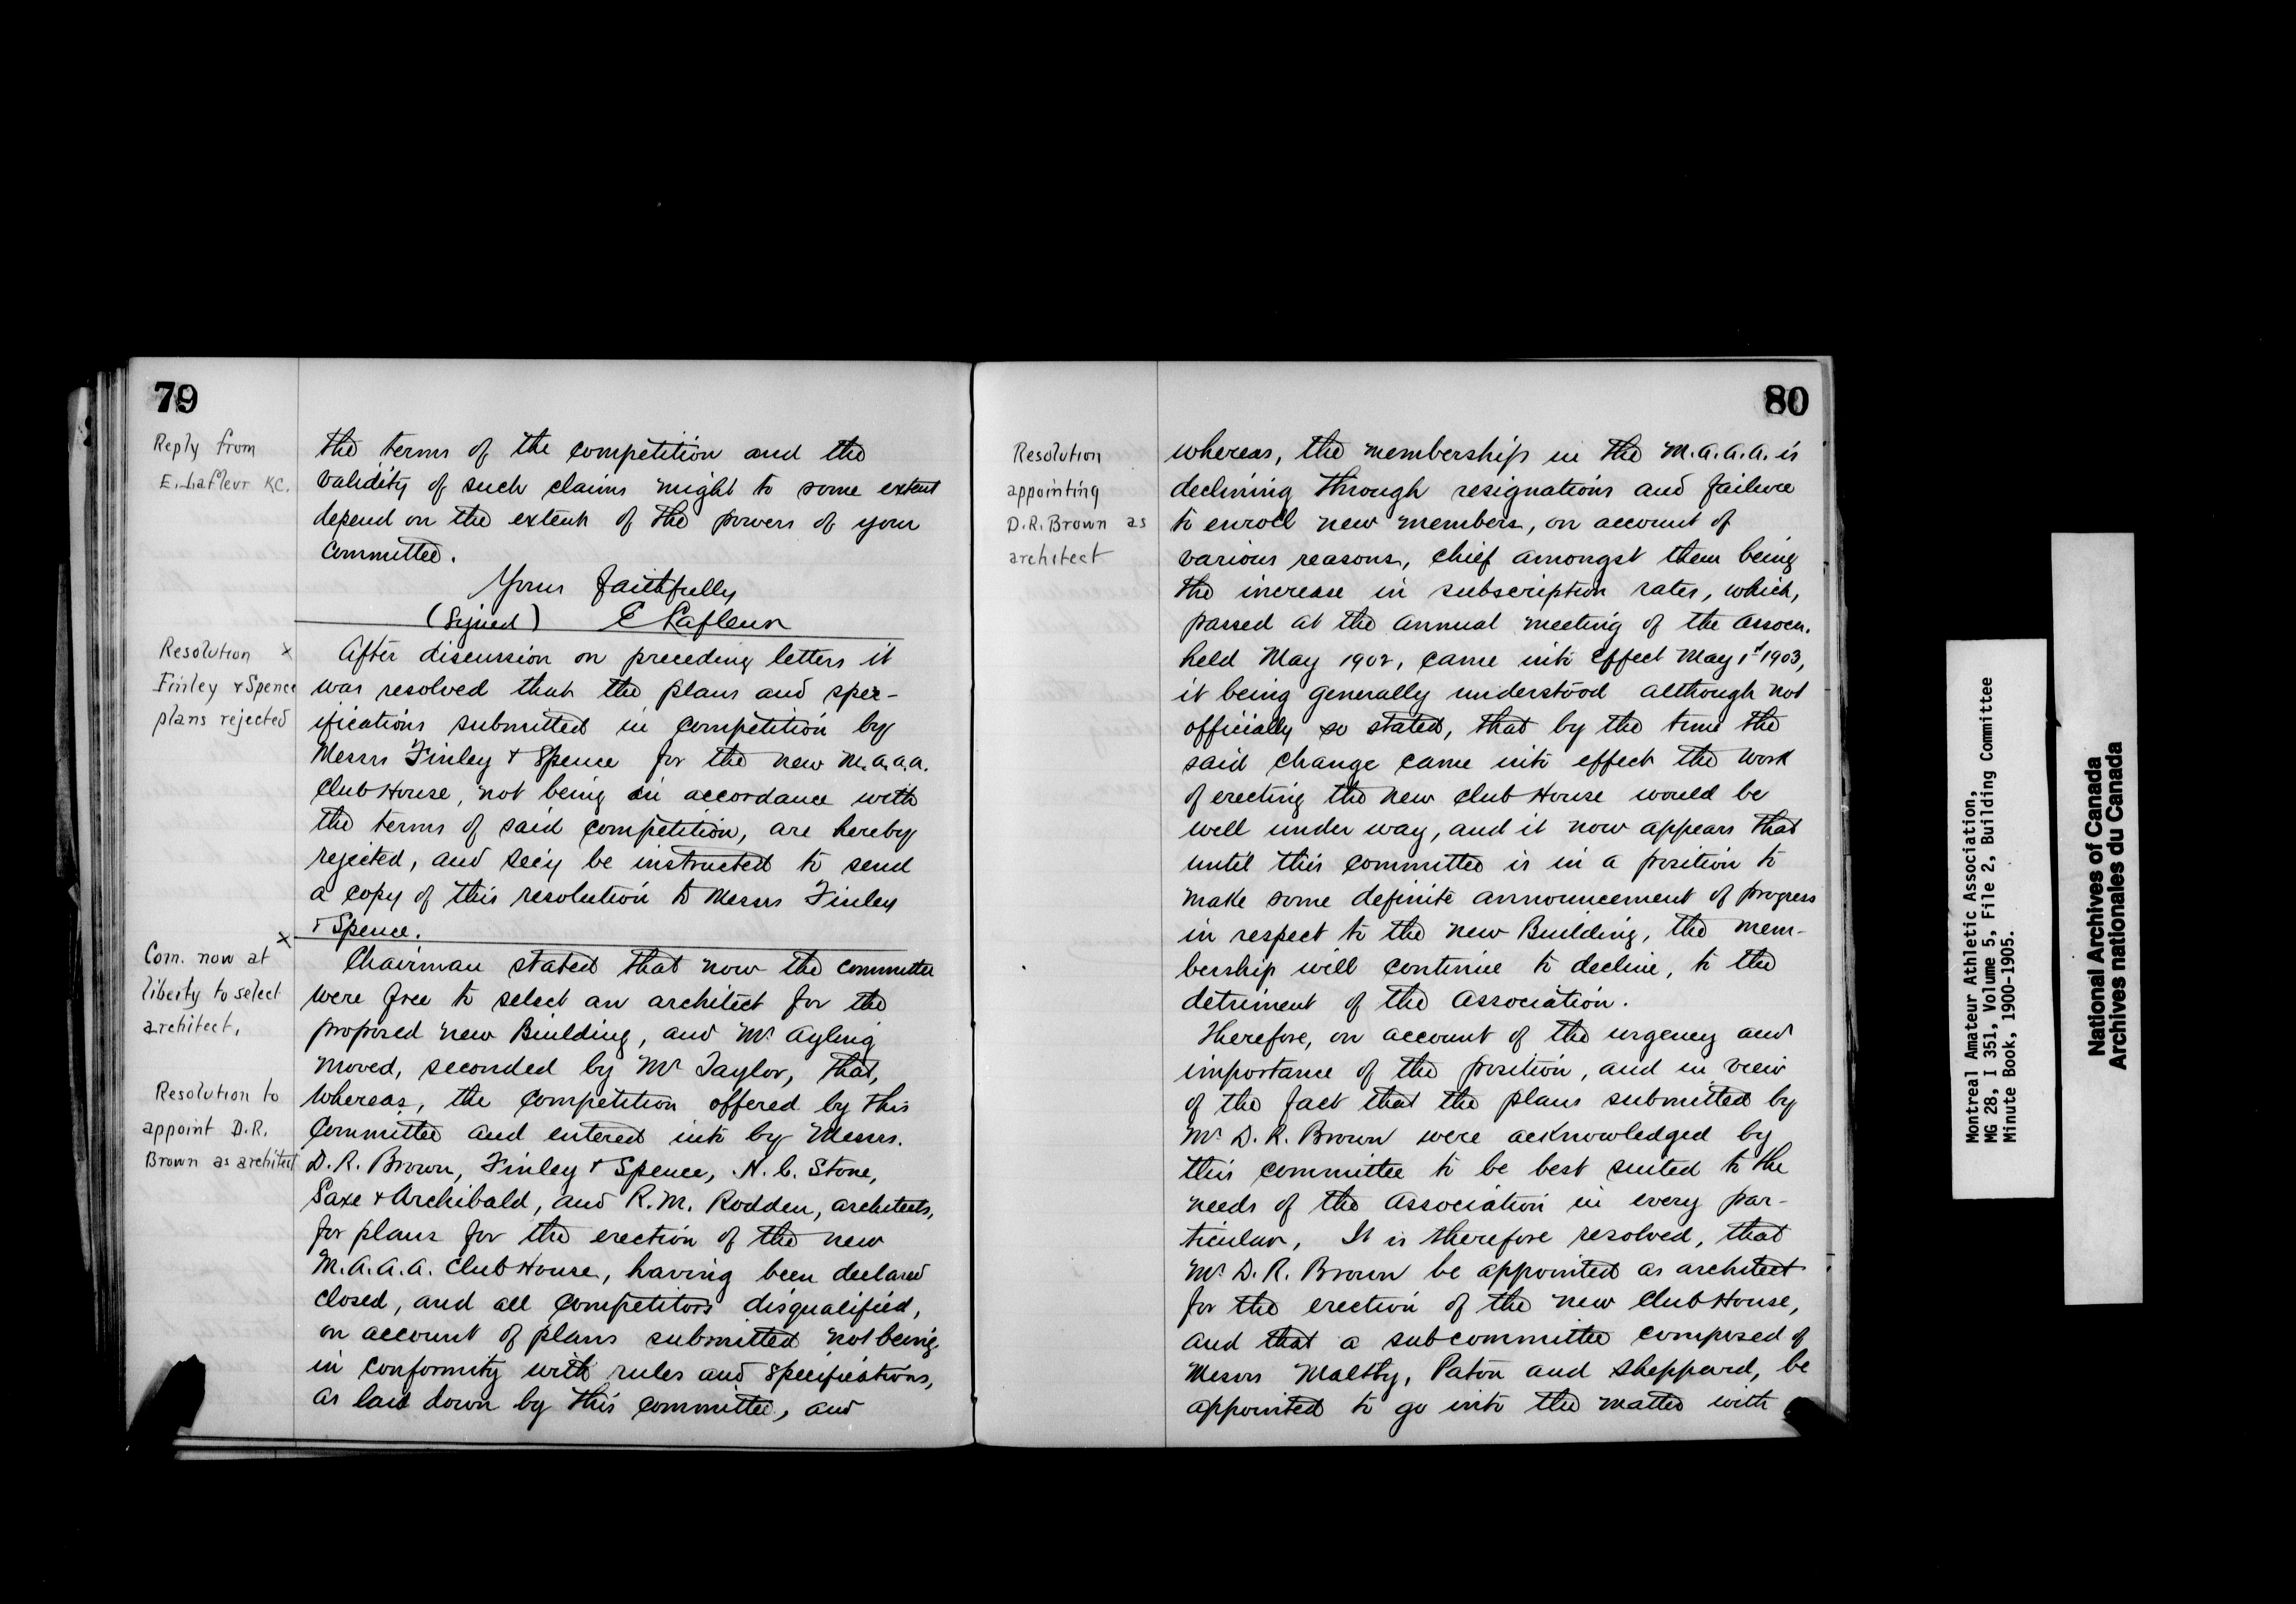 79
Reply from
E. Lafleur KC.
the terms of the competition and the
validity of such claims might to some extent
depend on the extent of the powers of your
Committee.
Yours faithfully
(Signed) E Lafleur
Resolution x
Finley & Spence
plans rejected
After discussion on preceding letters it
was resolved that the plans and spec-
ifications submitted in competition by
Messrs Finley & Spence for the new M.A.A.A.
Club House, not being in accordance with
the terms of said competition, are hereby
rejected, and Sec'y be instructed to send
a copy of this resolution to Messrs Finley
& Spence.
x
Com. now at
liberty to select
architect.
Chairman stated that now the committee
were free to select an architect for the
proposed new Building, and Mr Ayling
moved, seconded by Mr Taylor, that,
Resolution to
appoint D.R.
Brown as architect
whereas, the competition offered by this
Committee and entered into by Messrs.
D. R. Brown, Finley & Spence, H. C. Stone,
Saxe & Archibald, and R. M. Rodden, architects,
for plans for the erection of the new
M.A.A.A. Club House, having been declared
closed, and all competitors disqualified,
on account of plans submitted not being
in conformity with rules and specifications,
as laid down by this committee, and
80
Resolution
appointing
D.R. Brown as
architect
whereas, the membership in the M.A.A.A. is
declining through resignations and failure
to enroll new members, on account of
various reasons, chief amongst them being
the increase in subscription rates, which,
passed at the annual meeting of the Assocn.
held May 1902, came into effect May 1st 1903,
it being generally understood although not
officially so stated, that by the time the
said change came into effect the work
of erecting the new Club House would be
well under way, and it now appears that
until this committee is in a position to
make some definite announcement of progress
in respect to the new Building, the mem-
bership will continue to decline, to the
detriment of the Association.
Therefore, on account of the urgency and
importance of the position, and in view
of the fact that the plans submitted by
Mr D. R. Brown were acknowledged by
this committee to be best suited to the
needs of the Association in every par-
ticular, It is therefore resolved, that
Mr D. R. Brown be appointed as architect
for the erection of the new Club House,
and that a subcommittee composed of
Messrs Maltby, Paton and Sheppard, be
appointed to go into the matter with
Montreal Amateur Athletic Association,
MG 28, I 351, Volume 5, File 2, Building Committee
Minute Book, 1900-1905.
National Archives of Canada
Archives nationales du Canada